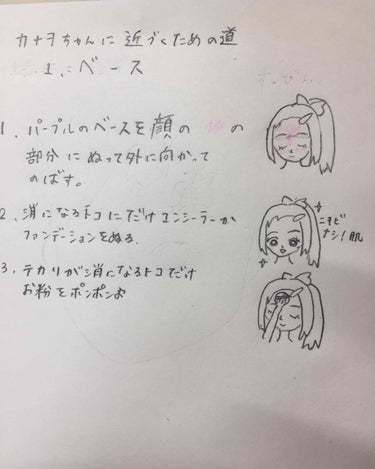 カナヲちゃんに近づくための道
1. ベース
すっぴん
1. パープルのベースを顔の の
部分にぬって外に向かって
のばす。
2. 気になるトコにだけコンシーラーか
ファンデーションをぬる.
ニキビ
ナシ!肌
3. テカリが気になるトコだけ
お粉をポンポンよ